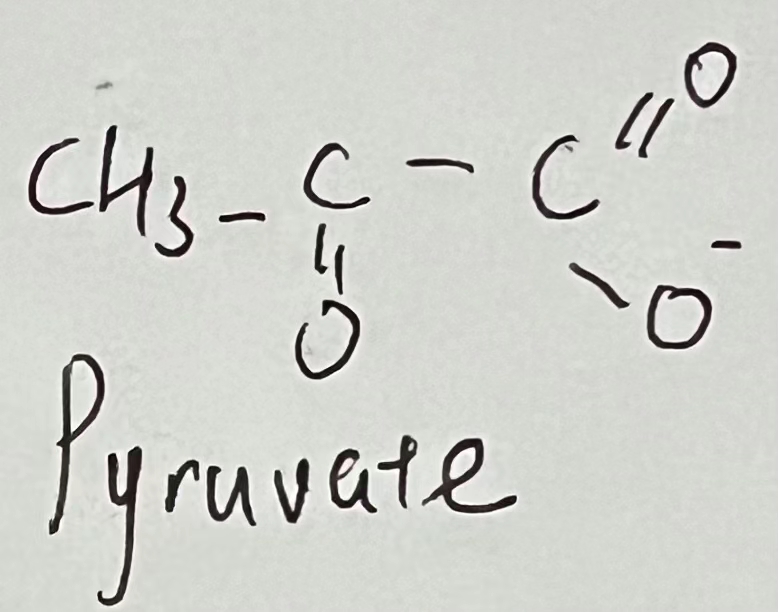 CH3 - C - C // O
\ O-
||
O
Pyruvate